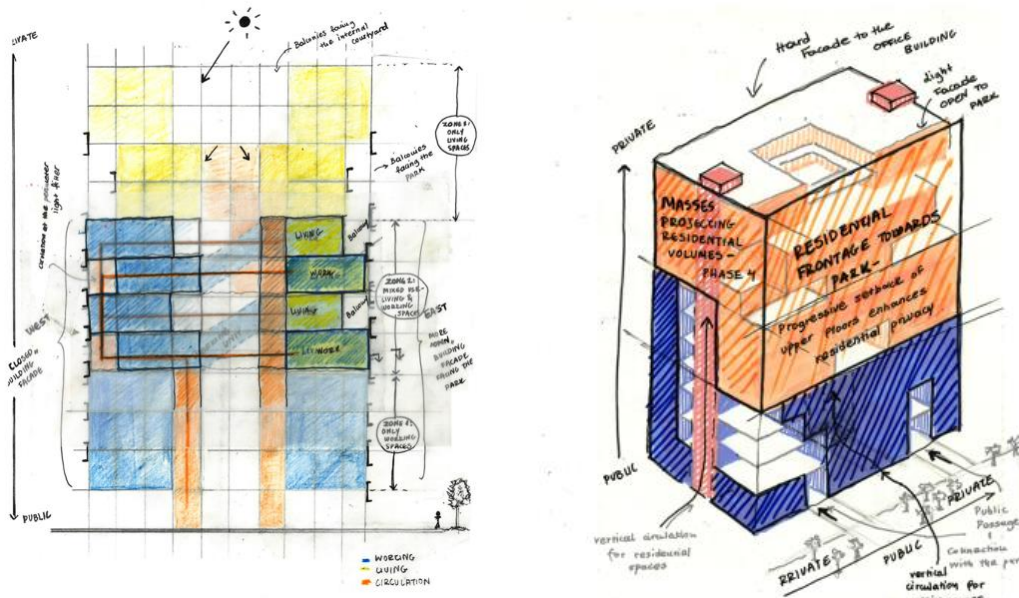 Balconies facing
the internal
courtyard
ZONE 3:
ONLY
LIVING
SPACES
Balconies
facing the
PARK
light filter
LIVING
Balcony
WORK
ZONE 2:
MIXED USE-
LIVING &
WORKING
SPACES
LIVING
Balcony
WEST
EAST
BUILDING
FACADE
FACING THE
PARK
BUILDING
FACADE
ONLY
WORKING
SPACES
PUBLIC
WORKING
LIVING
CIRCULATION
Hard
Facade to the
OFFICE
BUILDING
Light
Facade
OPEN TO
PARK
PRIVATE
MASSES
PROJECTING
RESIDENTIAL
VOLUMES -
PHASE 4
RESIDENTIAL
FRONTAGE TOWARDS
PARK-
Progressive setback of
upper floors enhances
residential privacy
PUBLIC
vertical circulation
for residential
spaces
PRIVATE
Public
Passage
Connection
with the
PRIVATE
PUBLIC
vertical
circulation for